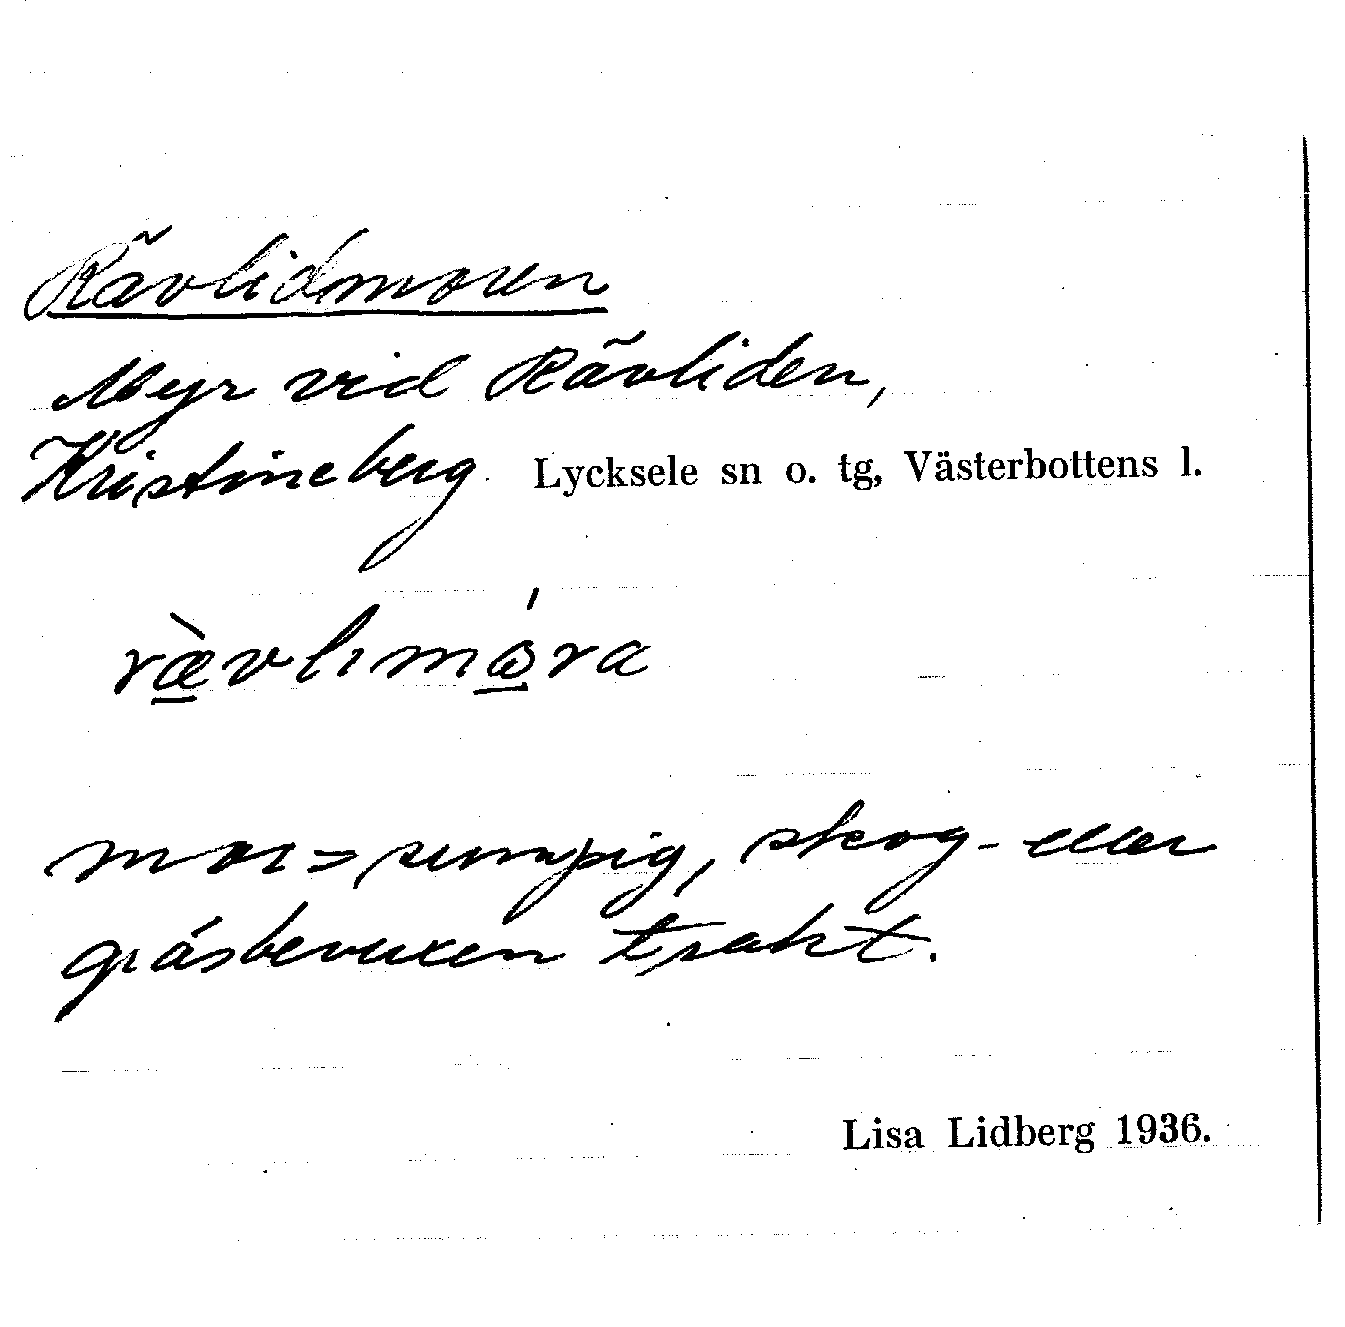 Rävlidmoren
Myr vid Rävliden,
Kristineberg. Lycksele sn o. tg, Västerbottens l.
ræ̀vlımɷ́ra
mor = sumpig, skog- eller
gräsbevuxen trakt.
Lisa Lidberg 1936.